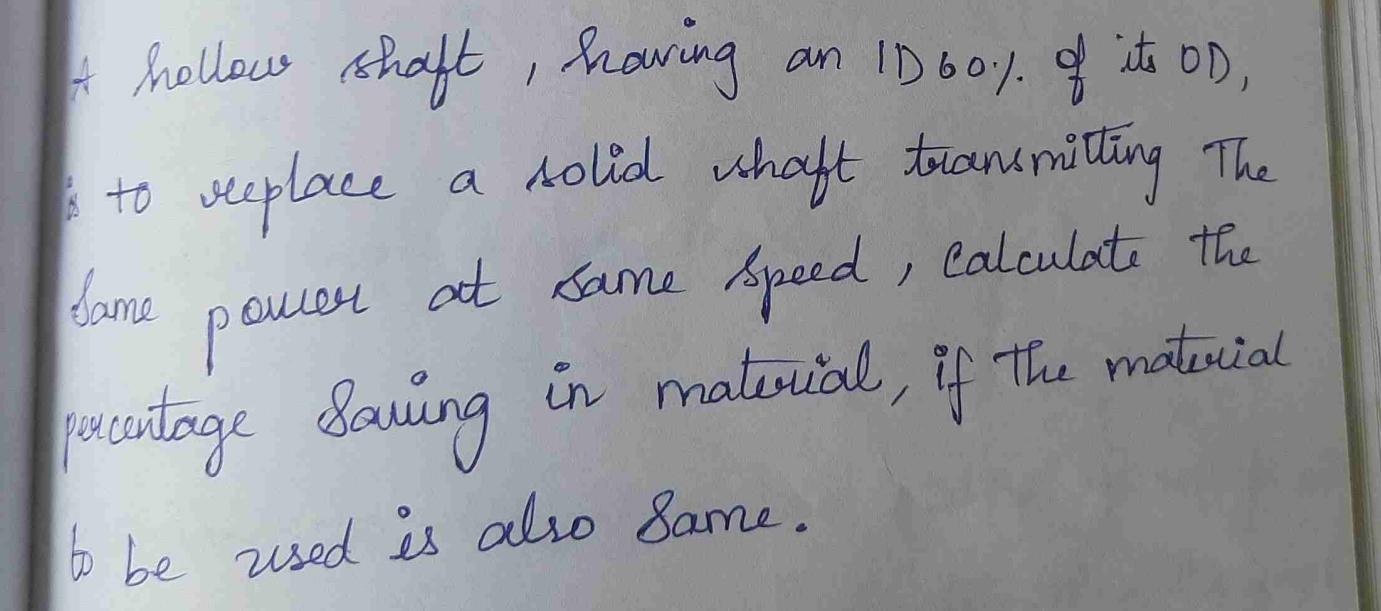 A hollow shaft, having an ID 60% of its OD,
is to replace a solid shaft transmitting The
Same power at same speed, Calculate the
percentage Saving in material, if the material
to be used is also Same.